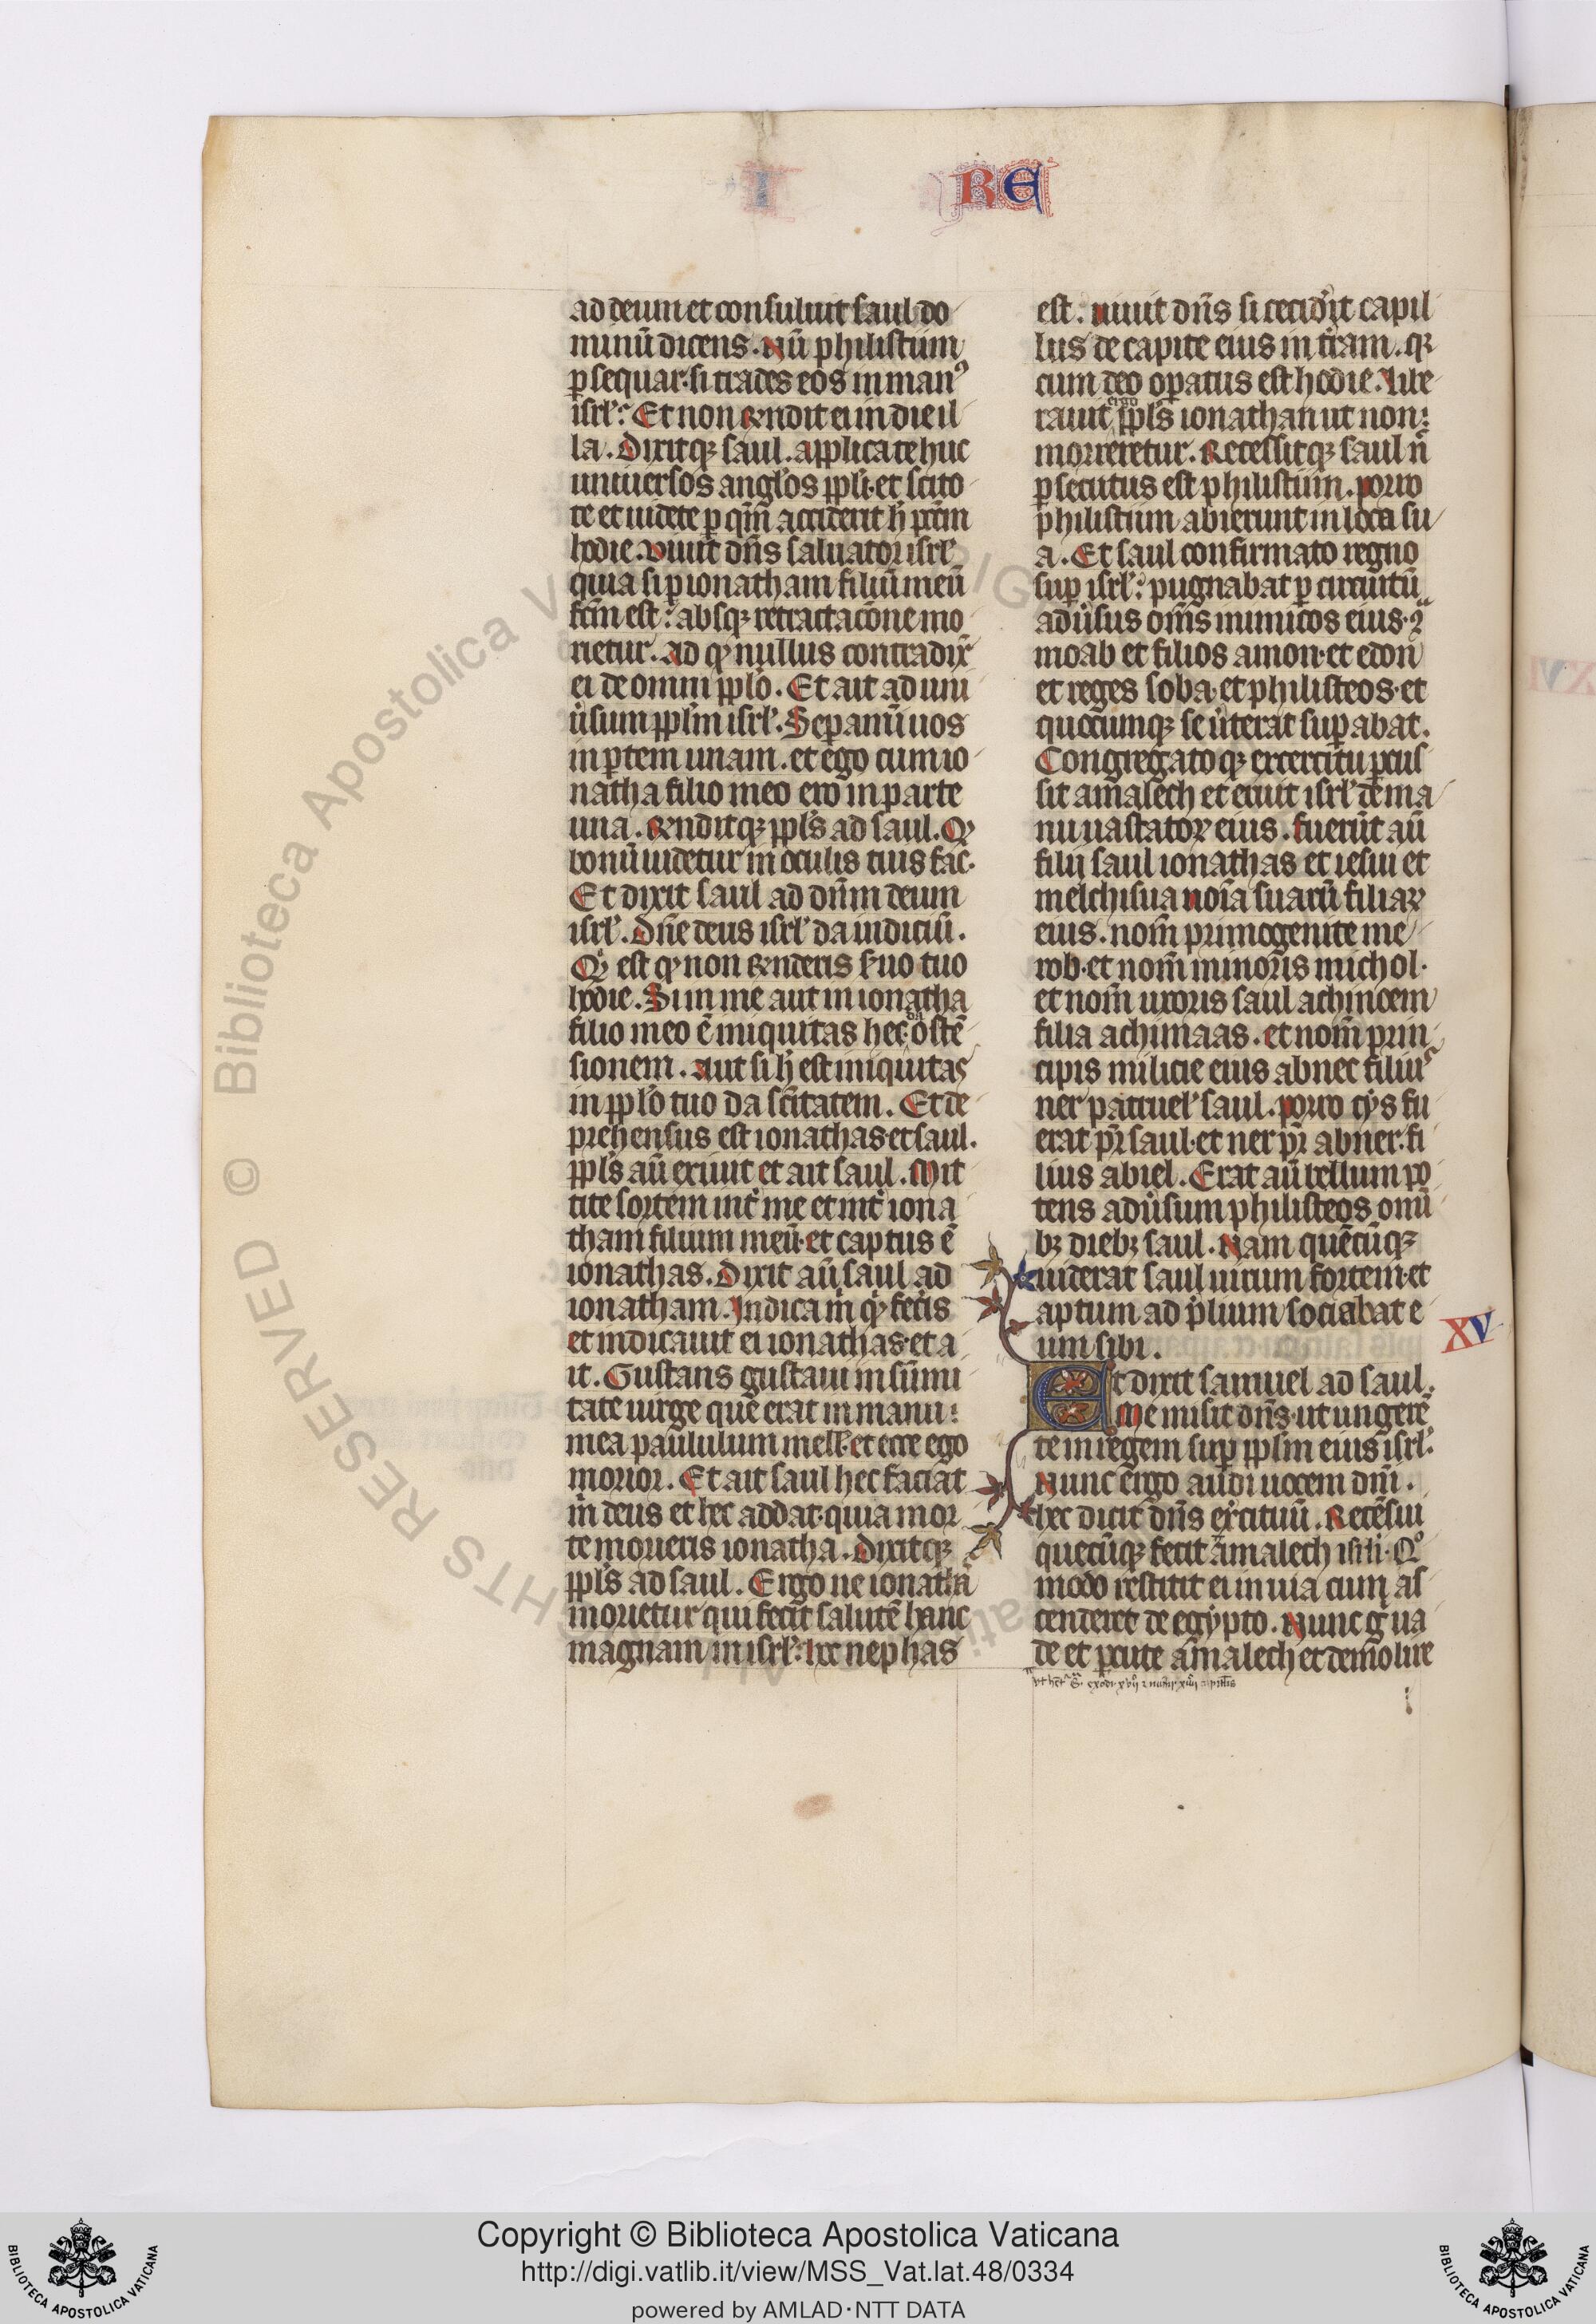 RE
ad deum et consuluit saul do
minū dicens. Nū philistiim
ꝑsequar· si trades eos in manꝰ
isrl̓. Et non rn̄dit ei in die il
la. Dixitqꝫ saul. applicate huc
uniuersos angl̓os ppl̓i· et scito
te et uidete ꝑ qm̄ acciderit h̓ pctm̄
hodie. viuit dn̄s saluator isrl̓
quia si ꝑ ionatham filiū meū
fcm̄ est: absqꝫ retractacōne mo
rietur. Ad qd̓ nullus contradix̄
ei de omni ppl̓o. Et ait ad uni
u̓sum ppl̓m isrl̓. Seperamī uos
in ꝑtem unam. et ego cum io
natha filio meo ero in parte
una. Rn̄ditqꝫ ppl̓s ad saul. Qd̓
bonū uidetur in oculis tuis fac·
Et dixit saul ad dn̄m deum
isrl̓. Dn̄e deus isrl̓ da iudiciū.
Qd̓ est qd̓ non rn̄deris s̓uo tuo
hodie. Si in me aut in ionatha
filio meo ē iniquitas hec· da ostē
sionem. Aut si h̓ est iniquitas
in ppl̓o tuo da scītatem. Et de
prehensus est ionathas et saul.
ppl̓s aū exiuit et ait saul. Mit
tite sortem int̓ me et int̓ iona
tham filium meū· et captus ē
ionathas. Dixit aū saul ad
ionatham. Indica m̓ qd̓ fec̓is
et indicauit ei ionathas· et a
it. Gustans gustaui in sūmi
tate uirge que erat in manu
mea paululum mell̓· et ecce ego
morior. Et ait saul hec faciat
m̓ deus et hec addat· quia mor
te morieris ionatha. Dixitqꝫ
ppl̓s ad saul. Ergo ne ionathā
morietur qui fecit salutē hanc
magnam in isrl̓: hoc nephas
est. uiuit dn̄s si cecid̓it capil
lus de capite eius in t̓ram. qꝛ
cum deo oꝑatus est hodie. Libe
rauit ergo ppl̓s ionathan ut non
morreretur. Recessitqꝫ saul n̄
ꝑsecutus est philistiim. porro
philistiim abierunt in loca su
a. Et saul confirmato regno
suꝑ isrl̓: pugnabat ꝑ circuitū
adu̓sus om̄s inimicos eius· ꝯ̄
moab et filios amon· et edon
et reges soba· et philisteos· et
quocumqꝫ se u̓terat suꝑabat.
Congregato qꝫ excercitu ꝑcus
sit amalech et eruit isrl̓ de ma
nu uastatoꝝ eius. fuerūt aū
filii saul ionathas et iesui et
melchisua noīa suarū filiaꝝ
eius. nom̄ primogenite me
rob· et nom̄ minoris michol·
et nom̄ uxoris saul achinoem
filia achimaas. et nom̄ prin
cipis milicie eius abner filius
ner patruel̓ saul. porro cys fu
erat pr̄ saul· et ner pr̄ abner· fi
lius abiel. Erat aū bellum po
tens adu̓sum philisteos omī
bꝫ diebꝫ saul. Nam quēcūqꝫ
uiderat saul uirum fortem· et
aptum ad p̓lium sociabat e
um sibi.
XV
Et dixit samuel ad saul.
Me misit dn̄s· ut ungerē
te in regem suꝑ ppl̓m eius isrl̓.
Nunc ergo audi uocem dn̄i.
hec dicit dn̄s ex̓cituū. Recēsui
quecūqꝫ fecit amalech isrl̓i. Qo
modo restitit ei in uia cum as
cenderet de egypto. Nunc g̓ ua
de et ꝑcute amalech et demolire
© Biblioteca Apostolica Vaticana
RIGHTS RESERVED
Copyright © Biblioteca Apostolica Vaticana
http://digi.vatlib.it/view/MSS_Vat.lat.48/0334
powered by AMLAD·NTT DATA
BIBLIOTECA APOSTOLICA VATICANA
BIBLIOTECA APOSTOLICA VATICANA